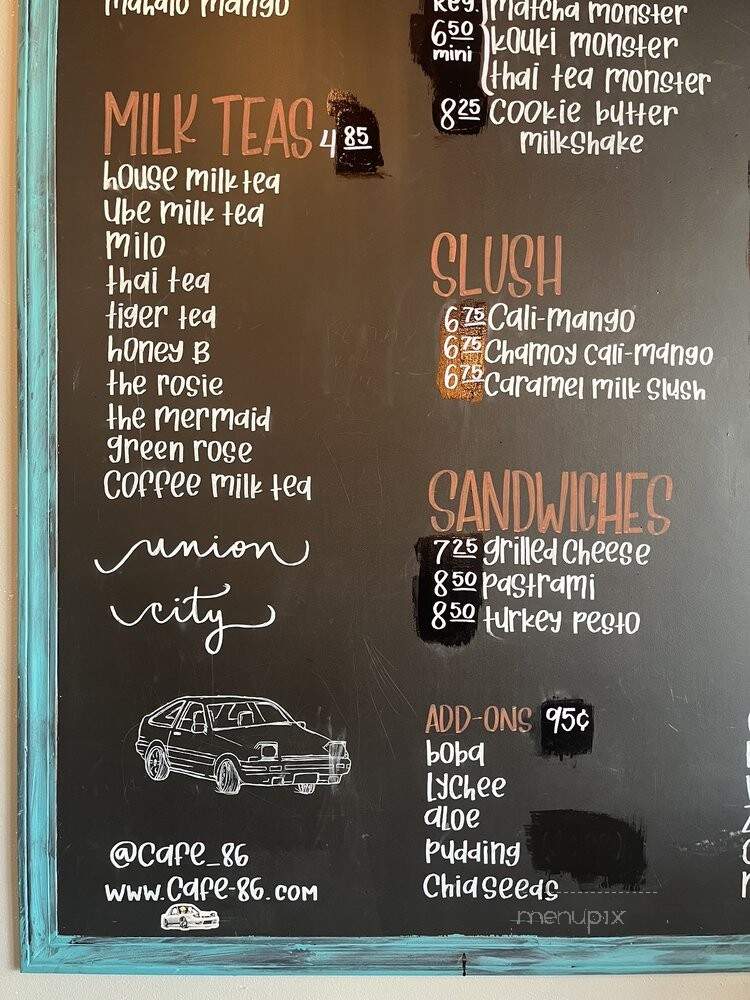 mahalo mango
MILK TEAS 4 85
house milk tea
ube milk tea
milo
thai tea
tiger tea
honey B
the rosie
the mermaid
green rose
coffee milk tea
union
city
@cafe_86
www.cafe-86.com
reg. matcha monster
6 50 kouki monster
mini thai tea monster
8 25 cookie butter
milkshake
SLUSH
6 75 Cali-mango
6 75 Chamoy cali-mango
6 75 Caramel milk slush
SANDWICHES
7 25 grilled cheese
8 50 pastrami
8 50 turkey pesto
ADD-ONS 95¢
boba
lychee
aloe
pudding
chia seeds
menupix